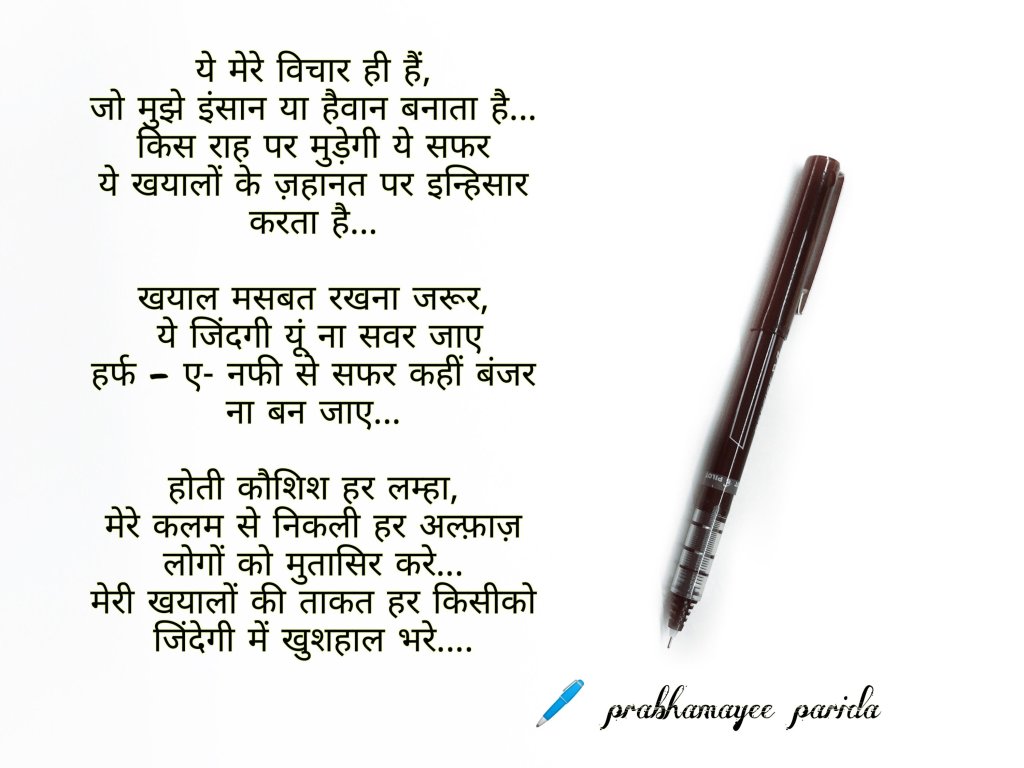 ये मेरे विचार ही हैं,
जो मुझे इंसान या हैवान बनाता है...
किस राह पर मुड़ेगी ये सफर
ये खयालों के ज़हानत पर इन्हिसार
करता है...
खयाल मसबत रखना जरूर,
ये जिंदगी यूं ना सवर जाए
हर्फ – ए- नफी से सफर कहीं बंजर
ना बन जाए...
होती कौशिश हर लम्हा,
मेरे कलम से निकली हर अल्फ़ाज़
लोगों को मुतासिर करे...
मेरी खयालों की ताकत हर किसीको
जिंदेगी में खुशहाल भरे....
PILOT
prabhamayee parida